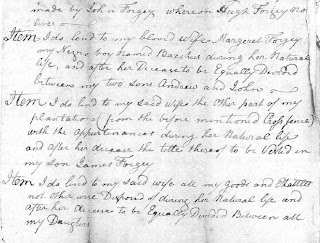 made by John Forgey whereon Hugh Forgey no
Item I do lend to my beloved Wife Margaret Forgey
my Negro boy named Bacchus during her Natural
life, and after her Decease to be Equally Divided
between my two Sons Andrew and John
Item I do lend to my Said wife the Other part of my
plantation (from the before mentioned Cross fence
with the appurtenances during her Natural life
and after her decease the title thereof to be Vested in
my Son James Forgey
Item I do lend to my Said wife all my goods and Chattels
not Otherwise Disposed of during her Natural life and
after her decease to be Equally Divided Between all
my Daughters